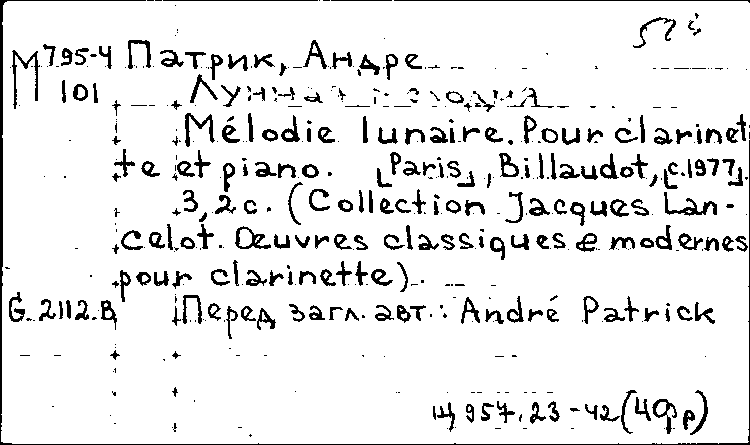 М 795-4 Патрик, Андре
101 Лунная мелодия
Mélodie lunaire. Pour clarinet
te et piano. [Paris], Billaudot, [c.1977].
3,2 с. (Collection Jacques Lan-
celot. Œuvres classiques e modernes
pour clarinette).
G. 2112.B Перед загл. авт.: André Patrick
957.23-42 (4фр)